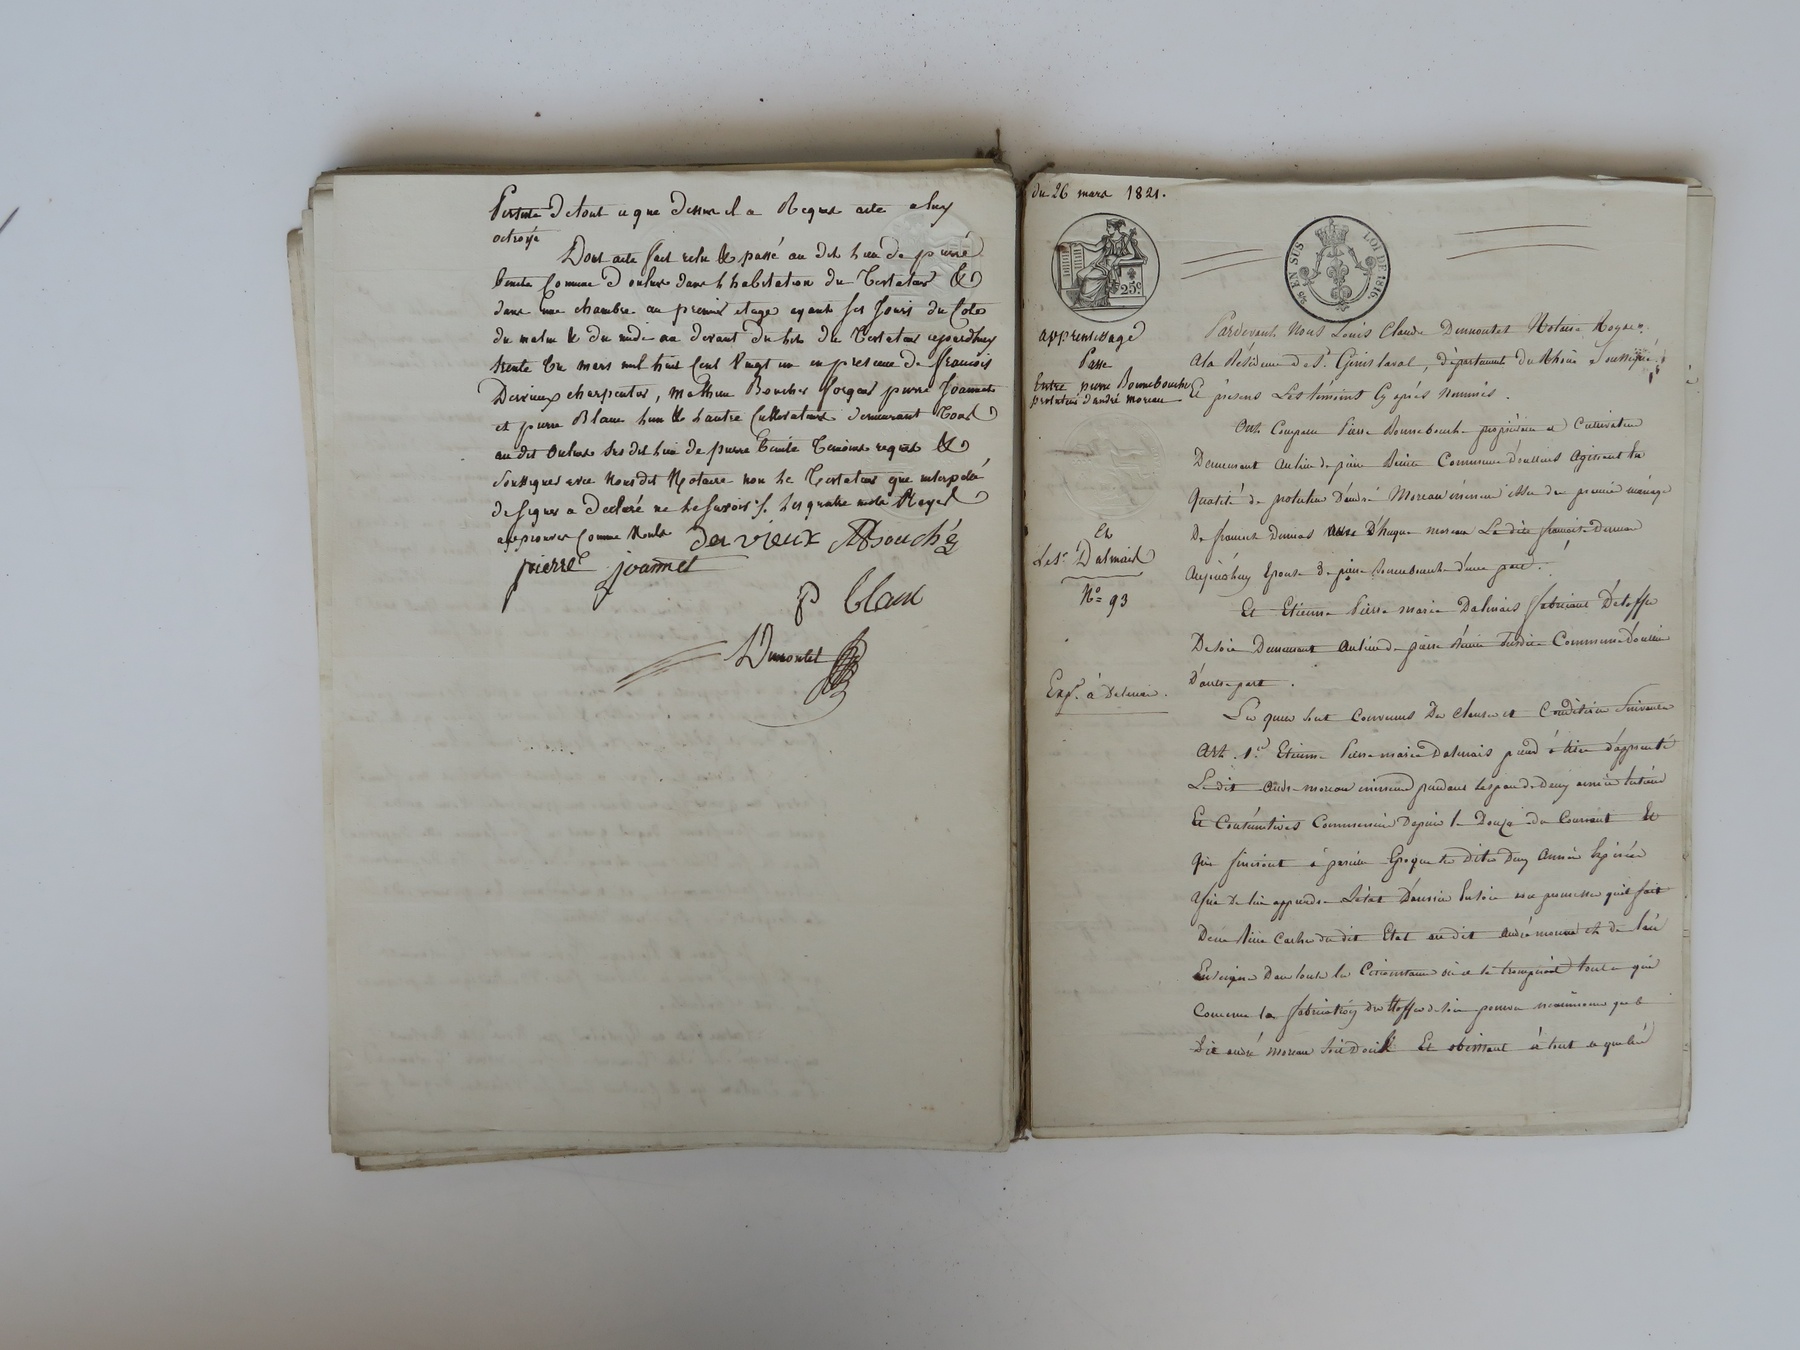 De tout ce que Dessus il a Requis acte a luy
octroyé
Dont acte fait relu & passé au dit lieu de pierre
benite Commune D'oulins dans l'habitation du Testateur &
dans une chambre au premier etage ayant ses jours du Coté
du matin & du midi au devant du lit du Testateur cejourdhuy
trente un mars mil huit Cent Vingt un en presence de francois
Dervieux charpentier, Mathieu Bouché pierre Joannet
et pierre Blanc l'un & l'autre Cultivateurs demeurant Tous
au dit oulins sus dit lieu de pierre benite Temoins requis &
Soussignés avec Nous dit Notaire non le Testateur que interpellé
de signer a Declaré ne le savoir les quatre mots Rayés
approuvés Comme Nuls dervieux Bouché
pierre joannet
P blanc
Dumontet
du 26 mars 1821.
25c
25 EN SUS LOI DE 1816.
apprentissage
Passé
Entre pierre Bonnebouche
protuteur d'andré moreau
Et
Le Sr. Dalmais
No. 93
Exp. à Dalmais.
Pardevant Nous Louis Claude Dumontet Notaire Royal
A la Résidence de St. Genis laval, département du Rhône Soussigné
Et présens Les témoins Cy après Nommés.
Ont Comparu Pierre Bonnebouche propriétaire et Cultivateur
Demeurant au lieu de pierre Benite Commune d'oullins Agissant en
Qualité de protuteur D'andré Moreau mineur issu du premier mariage
De francoise avec D'hugue moreau La dite francoise
Aujourd'huy Epouse de pierre Bonnebouche d'une part.
Et Etienne Pierre marie Dalmais fabricant D'etoffe
De soie Demeurant au lieu de pierre Benite Susdite Commune d'oullins
D'autre part.
Les quels sont Convenus Des Clauses et Conditions Suivantes
Art. 1er Etienne Pierre marie Dalmais prend à titre d'apprenti
Le dit André moreau mineur pendant l'espace de Deux années entières
Et Consécutives Commencées Depuis le Douze du Courant Et
Qui finiront à pareille Epoque les dites Deux Années Expirées
Afin de lui apprendre L'état D'ouvrier En soie avec promesse qu'il fait
De ne Rien Cacher du dit Etat au dit André moreau et de l'en
Enseigner Dans toute les Circonstances où il le tout ce qui
Concerne la fabrication des Etoffes de soie pourvu néanmoins que le
Dit andré moreau soit Docile Et obéissant à tout ce qu'il lui